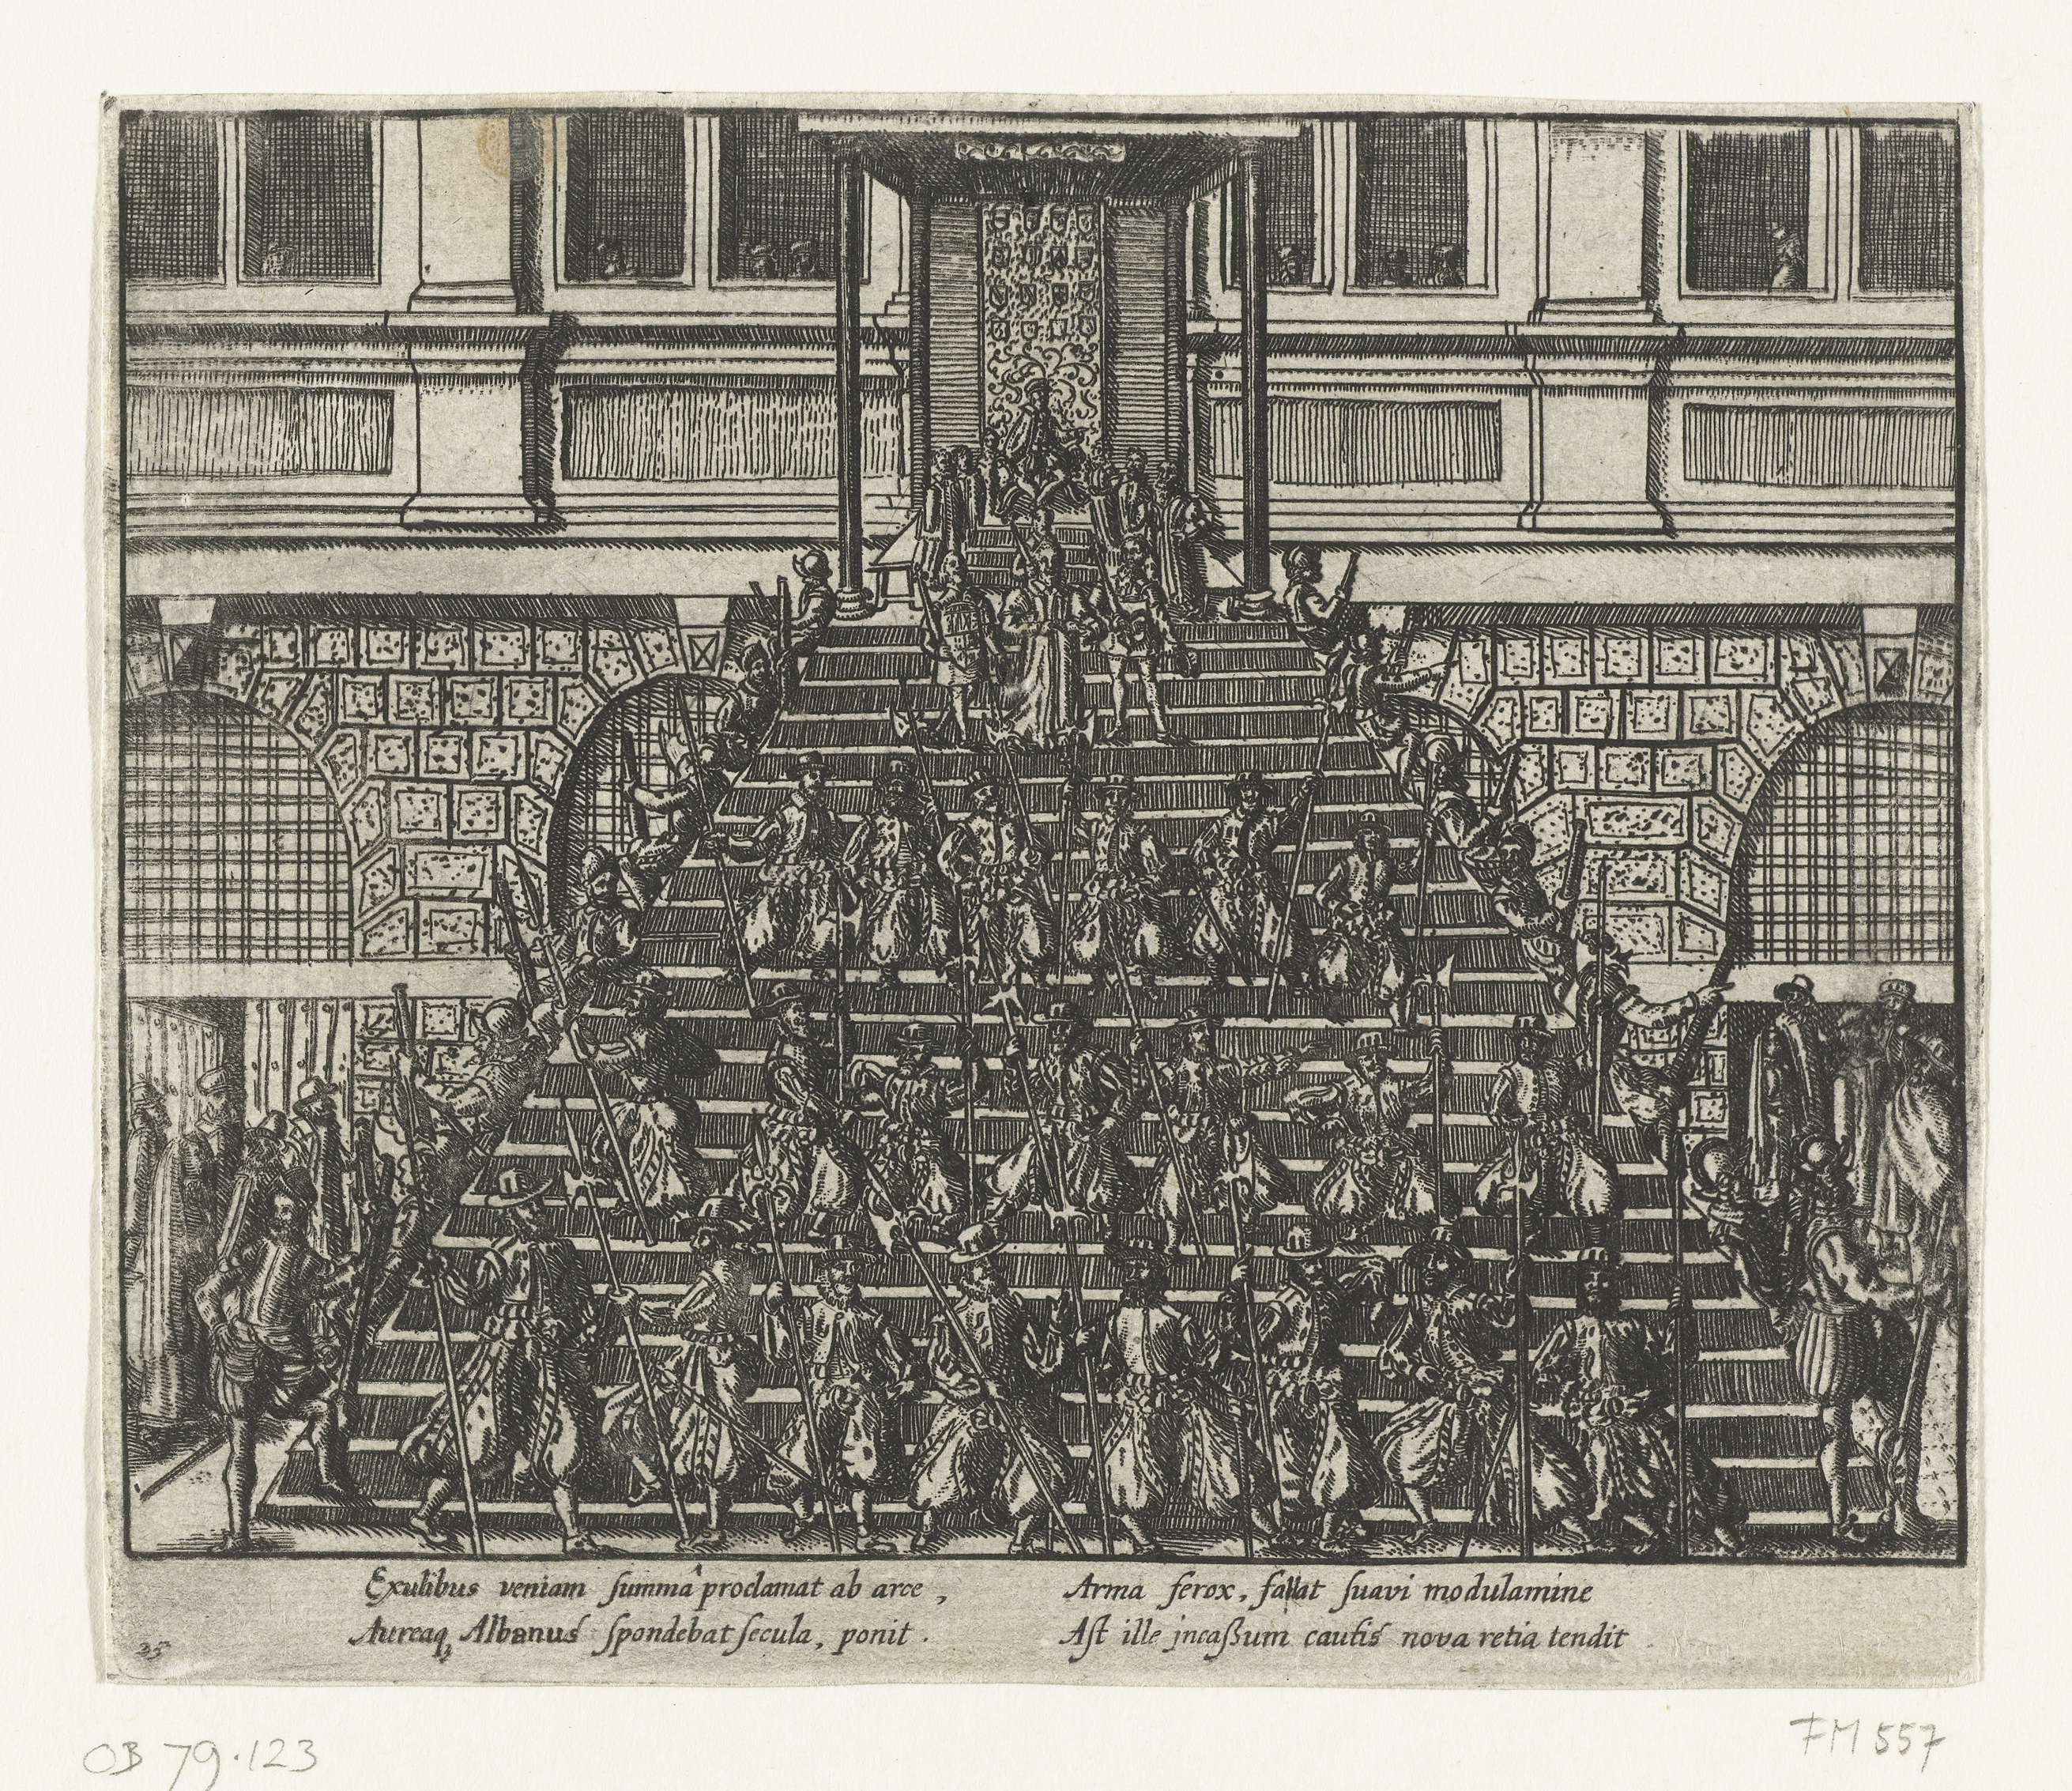 Exulibus veniam summâ proclamat ab arce ,
Aureaq, Albanus spondebat secula, ponit .
Arma ferox, fallat suavi modulamine
Ast ille jncaßum cautis nova retia tendit .
35
OB 79.123
FM 557